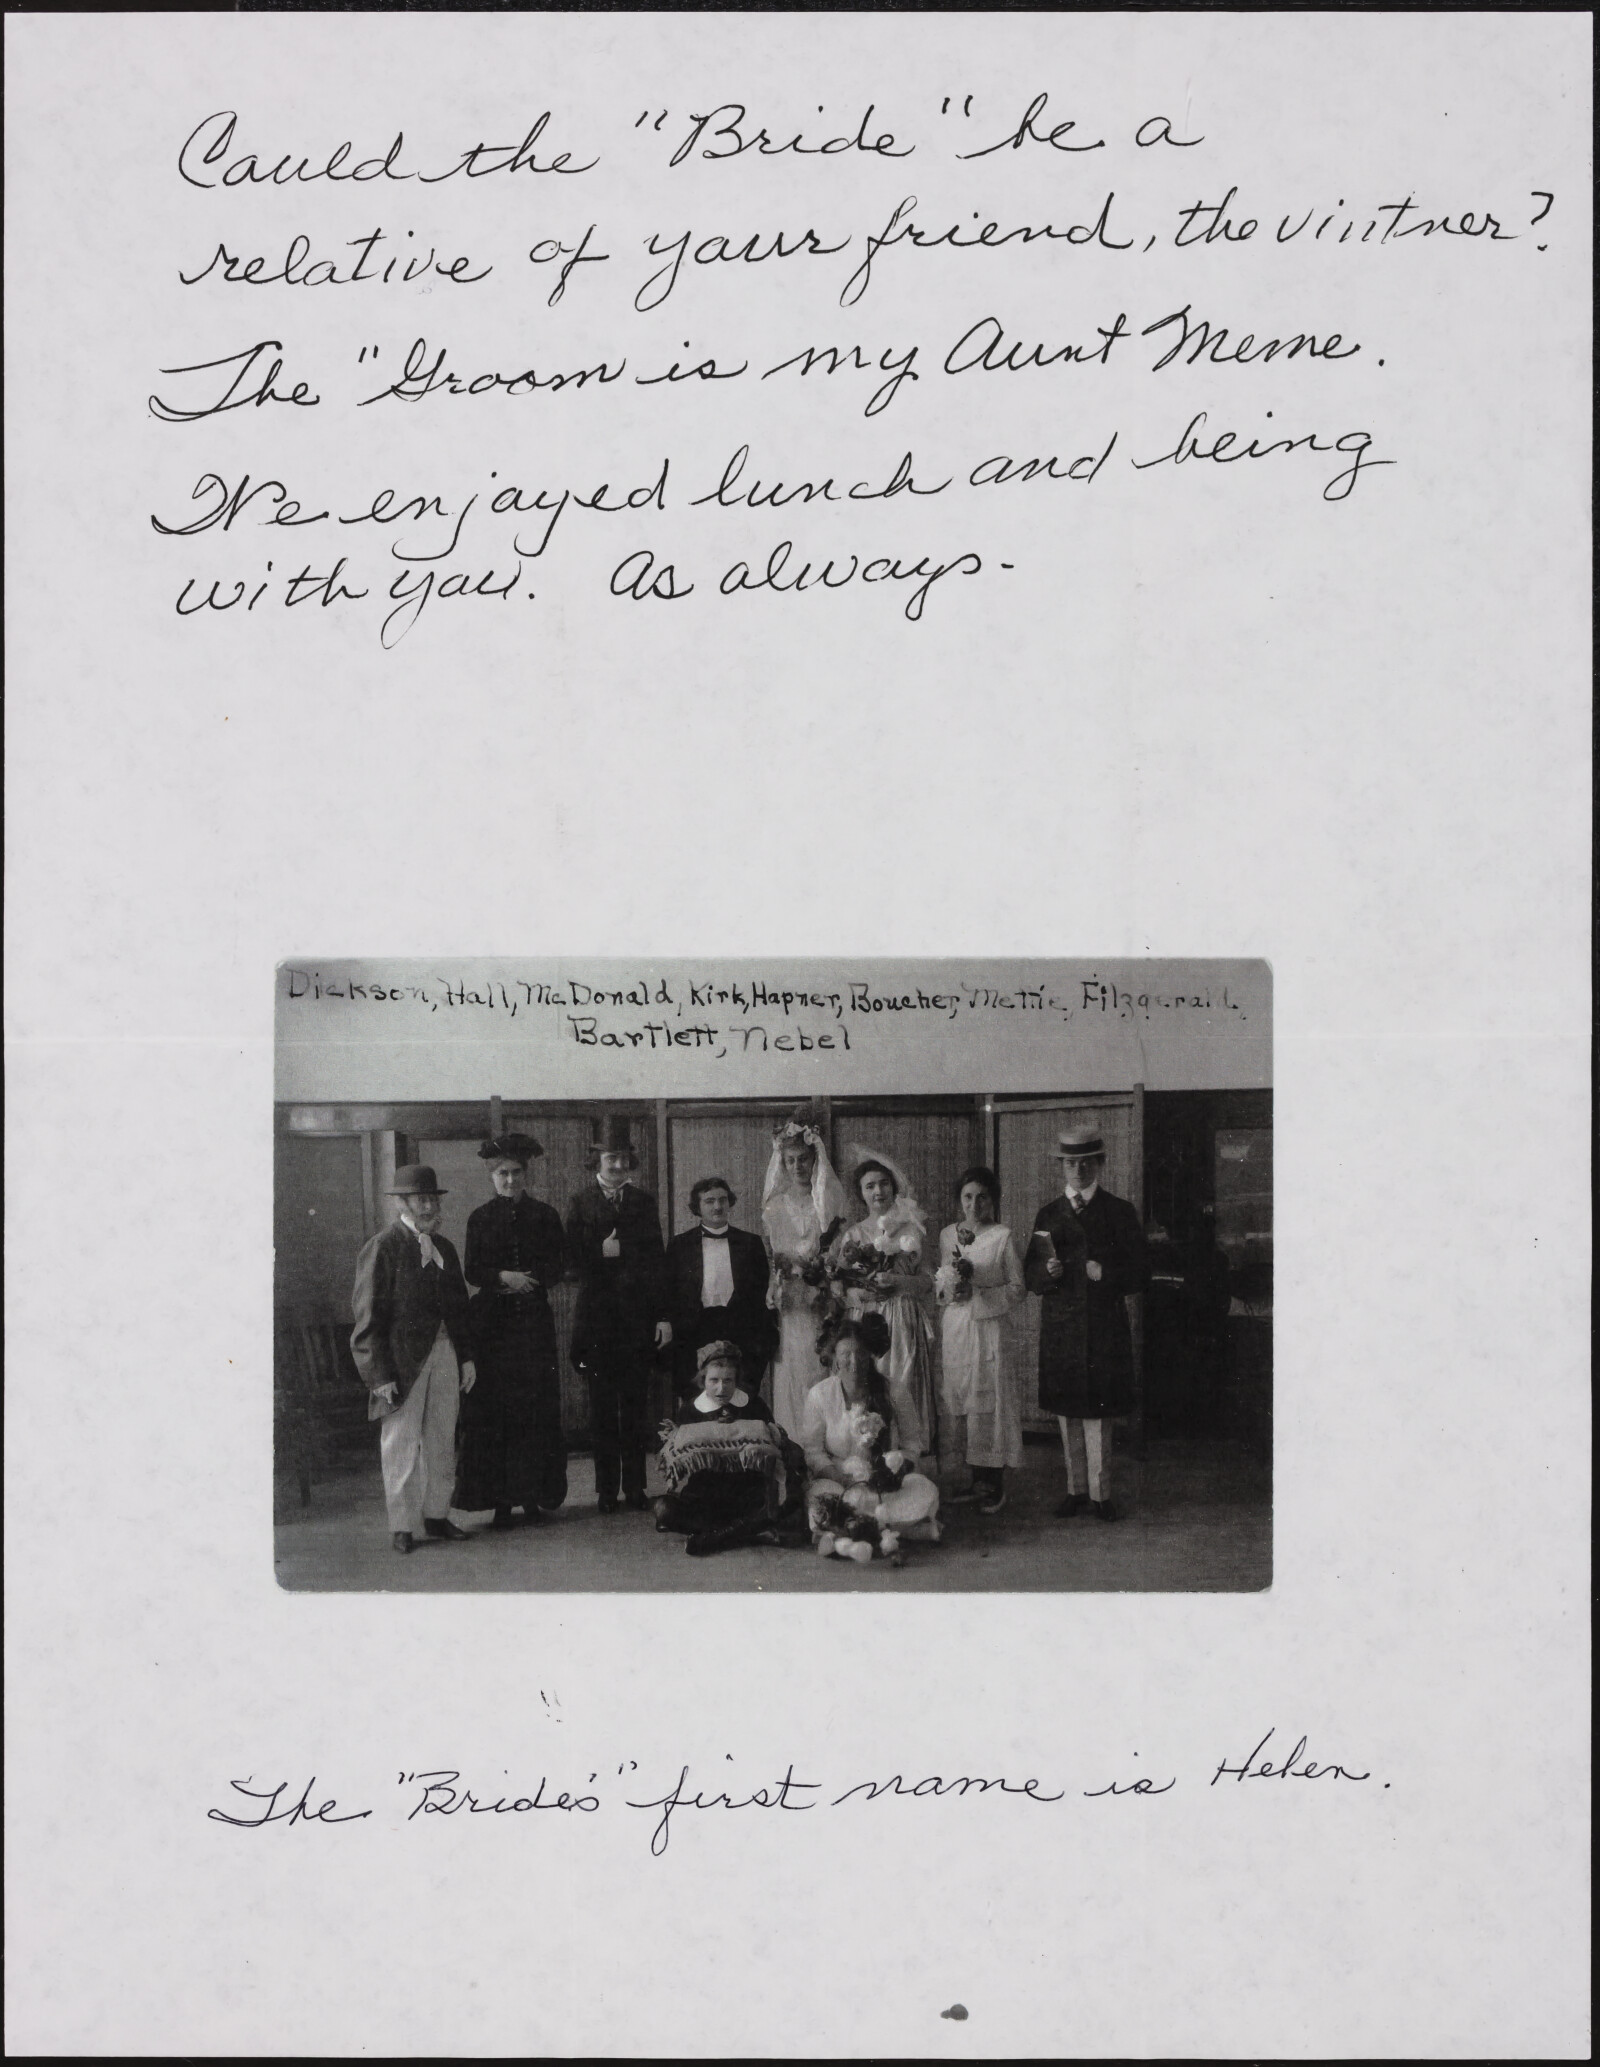 Could the "Bride" be a
relative of your friend, the vintner?
The "Groom is my Aunt Meme.
We enjoyed lunch and being
with you. As always.
Dickson, Hall, McDonald, Kirk, Hapner, Boucher, Mettie, Fitzgerald,
Bartlett, Nebel
The "Bride's" first name is Helen.